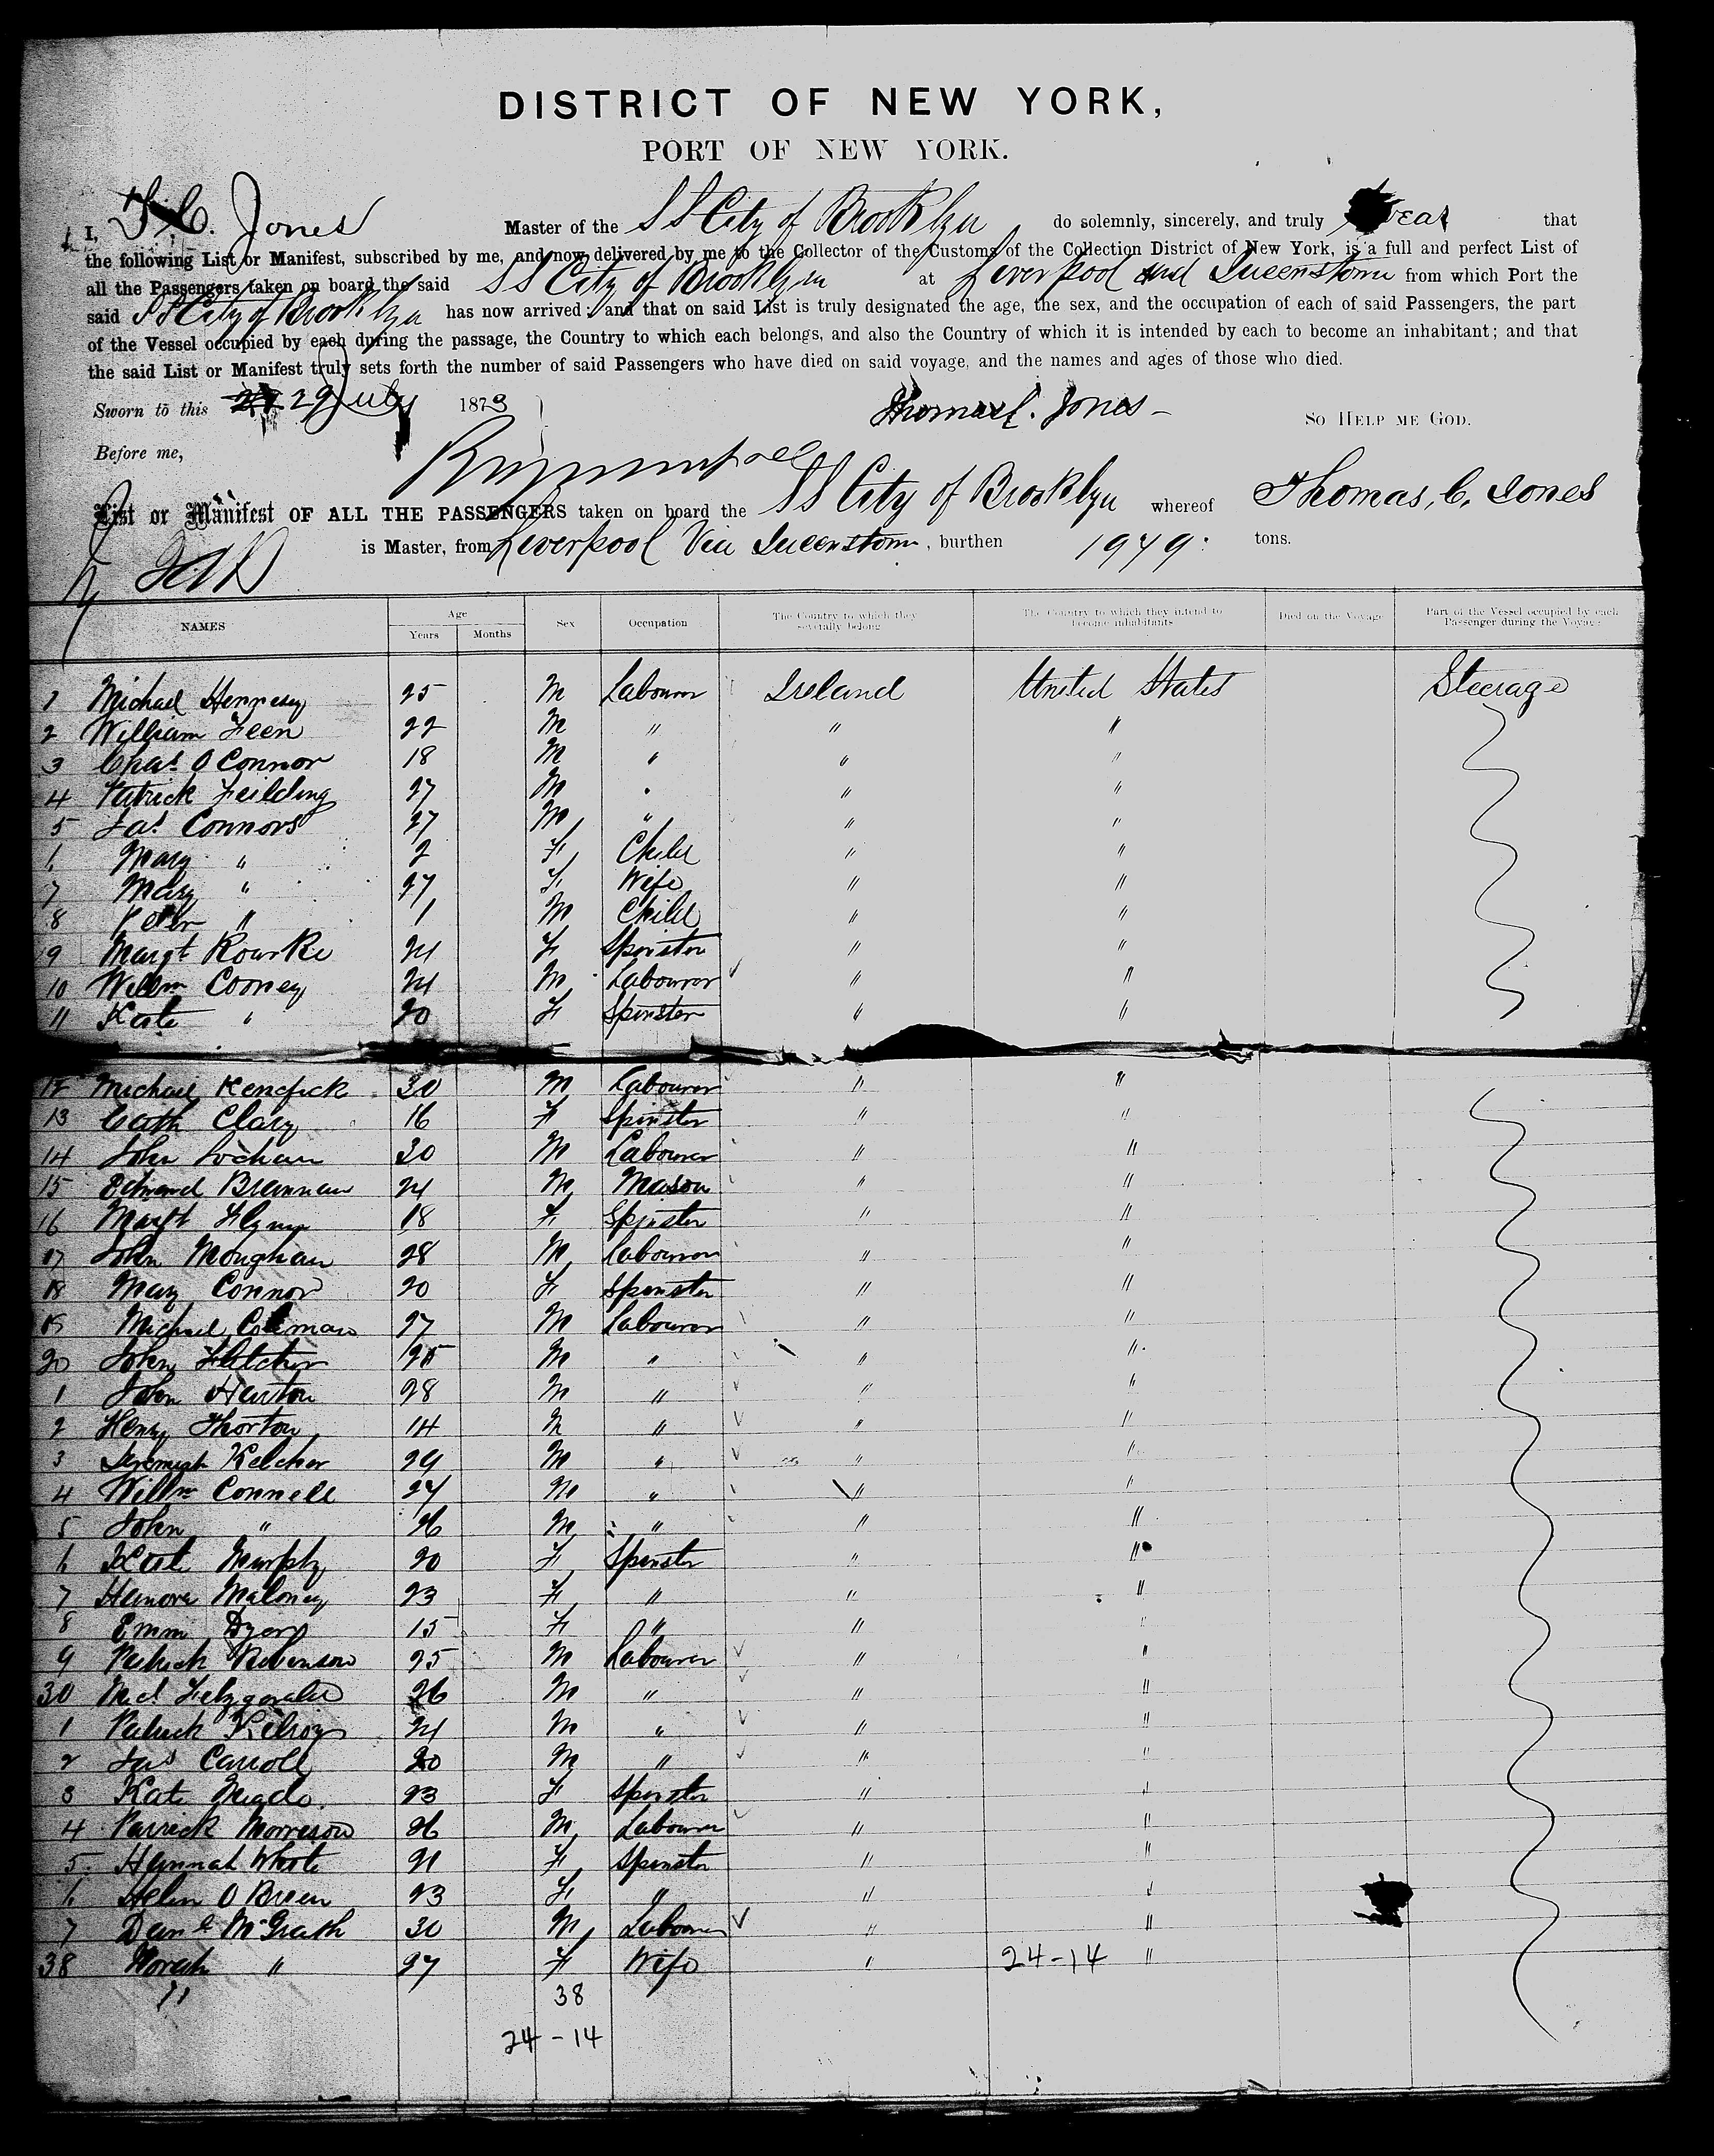 DISTRICT OF NEW YORK,
PORT OF NEW YORK.
I, T. C. Jones Master of the S S City of Brooklyn do solemnly, sincerely, and truly swear that
the following List or Manifest, subscribed by me, and now delivered by me to the Collector of the Customs of the Collection District of New York, is a full and perfect List of
all the Passengers taken on board the said S S City of Brooklyn at Liverpool and Queenstown from which Port the
said S S City of Brooklyn has now arrived: and that on said List is truly designated the age, the sex, and the occupation of each of said Passengers, the part
of the Vessel occupied by each during the passage, the Country to which each belongs, and also the Country of which it is intended by each to become an inhabitant; and that
the said List or Manifest truly sets forth the number of said Passengers who have died on said voyage, and the names and ages of those who died.
Sworn to this 29 July 1873 Thomas C. Jones So Help me God.
Before me,
List or Manifest OF ALL THE PASSENGERS taken on board the S S City of Brooklyn whereof Thomas, C, Jones
is Master, from Liverpool Via Queenstown, burthen 1949 tons.
NAMES Age Years Months Sex Occupation The Country to which they severally belong The Country to which they intend to become inhabitants Died on the Voyage Part of the Vessel occupied by each Passenger during the Voyage
1 Michael Hennesy 25 M Labourer Ireland United States Steerage
2 William Feen 22 M " " "
3 Chas. O Connor 18 M " " "
4 Patrick Feilding 27 M " " "
5 Jas. Connors 27 M " " "
6 Mary " 2 F Child " "
7 Mary " 27 F Wife " "
8 Peter " 1 M Child " "
9 Margt Rourke 24 F Spinster " "
10 Willm Cooney 24 M Labourer " "
11 Kate " 20 F Spinster " "
12 Michael Kendfick 30 M Labourer " "
13 Cath Clary 16 F Spinster " "
14 John 30 M Labourer " "
15 Edmond Brennan 24 M Mason " "
16 Margt Flynn 18 F Spinster " "
17 John Moughan 28 M Labourer " "
18 Mary Connor 20 F Spinster " "
19 Michael Coleman 27 M Labourer " "
20 John Fletcher 25 M " " "
1 John 28 M " " "
2 Henry Thorton 14 M " " "
3 Jeremiah Kelcher 24 M " " "
4 Willm Connell 24 M " " "
5 John " 26 M " " "
6 Kate Murphy 20 F Spinster " "
7 Hanora Maloney 23 F " " "
8 Emma Dyer 15 F " " "
9 Patrick Robinson 25 M Labourer " "
30 Mcl Fitzgerald 26 M " " "
1 Patrick Kilroy 24 M " " "
2 Jas Carroll 20 M " " "
3 Kate Meade 23 F Spinster " "
4 Patrick Morrison 26 M Labourer " "
5 Hannah White 21 F Spinster " "
6 Helen O Brien 23 F " " "
7 Danl McGrath 30 M Labourer " "
38 Norah " 27 F Wife " 24-14 "
38
24-14